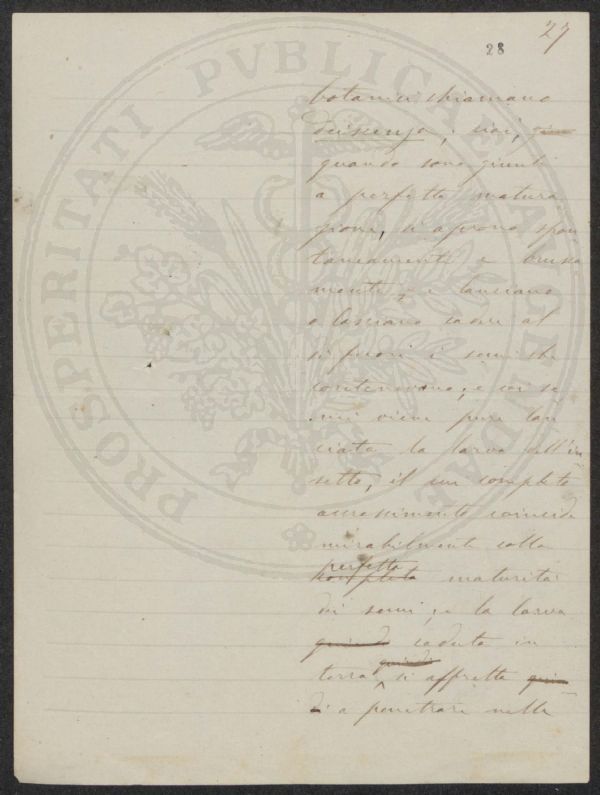 27
28
PROSPERITATI PVBLICAE AVGENDAE
botanici chiamano
deiscenza, cioè,
quando sono giunti
a perfetta matura
zione, si aprono spon
taneamente e brusca
mente, e lanciano
o lasciano cadere al
di fuori i semi che
contenevano; e coi se
mi viene pure lan
ciata la larva dell'in
setto, il cui completo
accrescimento coincide
mirabilmente colla
perfetta
completa maturità
dei semi; e la larva
quindi caduta in
terra quindi si affretta quin
di a penetrare nelle